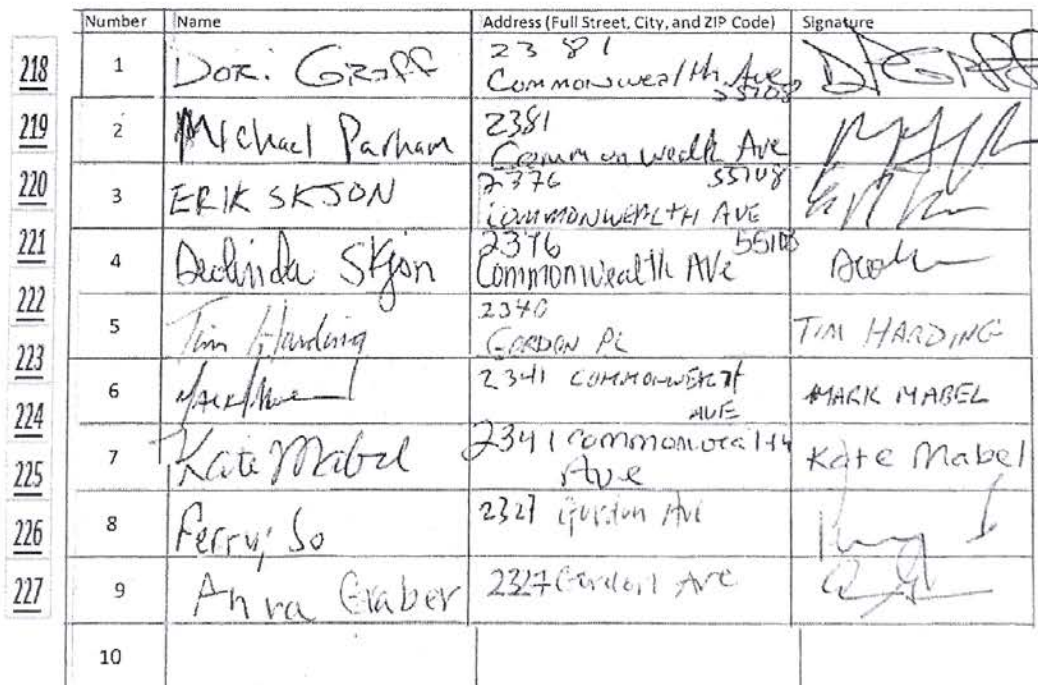 Number Name Address (Full Street, City, and ZIP Code) Signature
218 1 Dori Graff 2381 Commonwealth Ave 55108 D Graff
219 2 Michael Parham 2381 Commonwealth Ave 55108
220 3 ERIK SKJON 2376 COMMONWEALTH AVE
221 4 Skjon 2376 Commonwealth Ave 55108
222 5 Tim Harding 2340 GORDON PL TIM HARDING
223 6 2341 COMMONWEALTH AVE MARK MABEL
224 7 Kate Mabel 2341 Commonwealth Ave Kate Mabel
225 8 So 2327 Gordon Ave
226 9 Anna Graber 2327 Gordon Ave
227 10